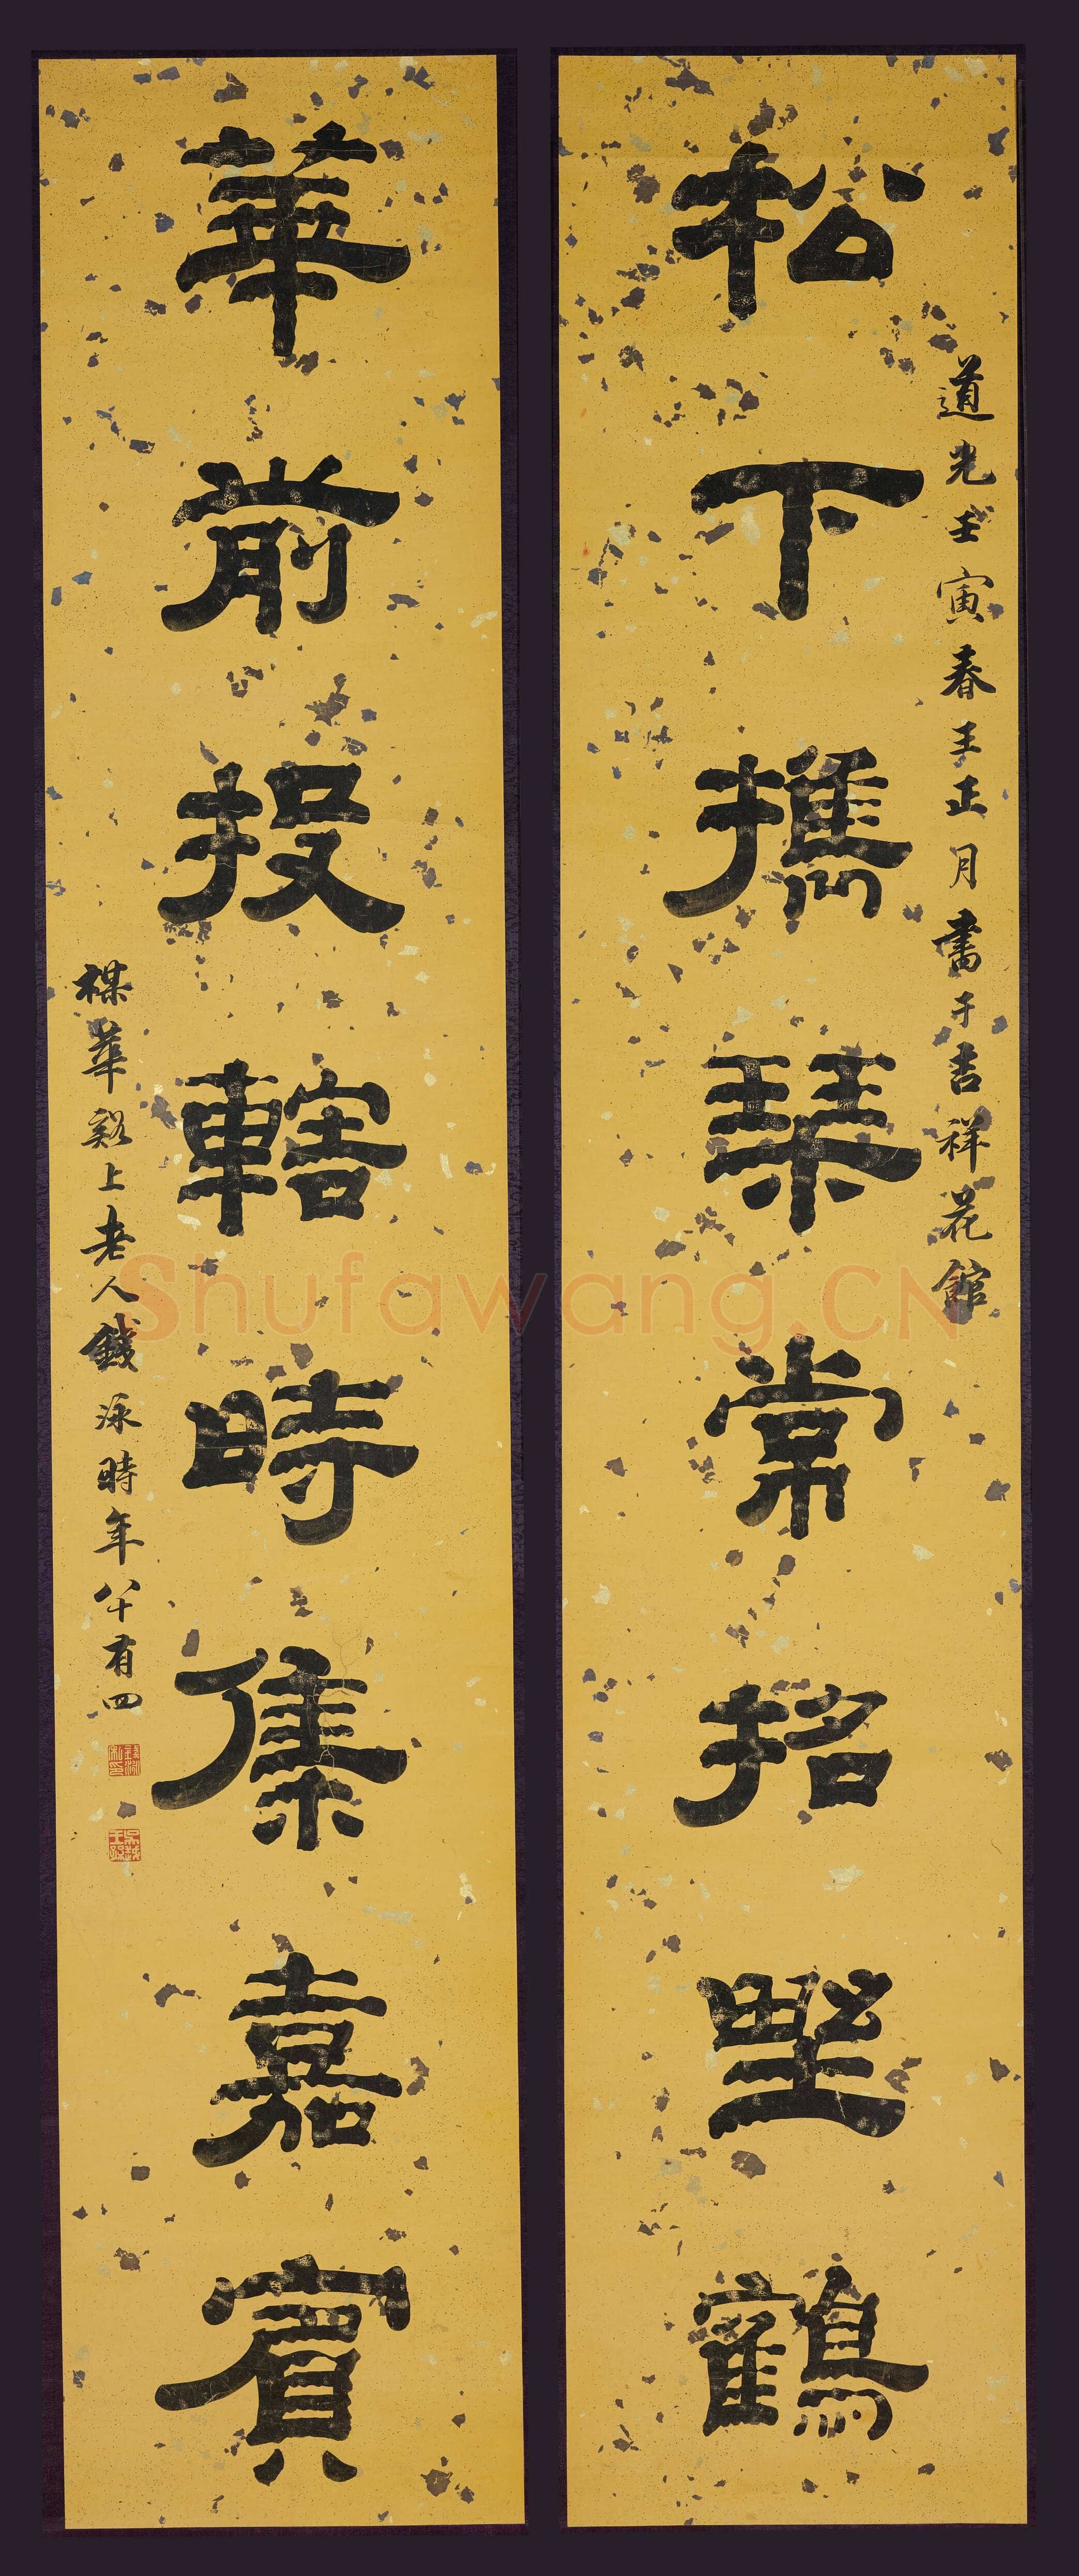 松下攜琹常招野鶴
道光壬寅春王正月書于吉祥花館
華前投轄時集嘉賓
楳華谿上老人錢泳時年八十有四
Shufawang.CN